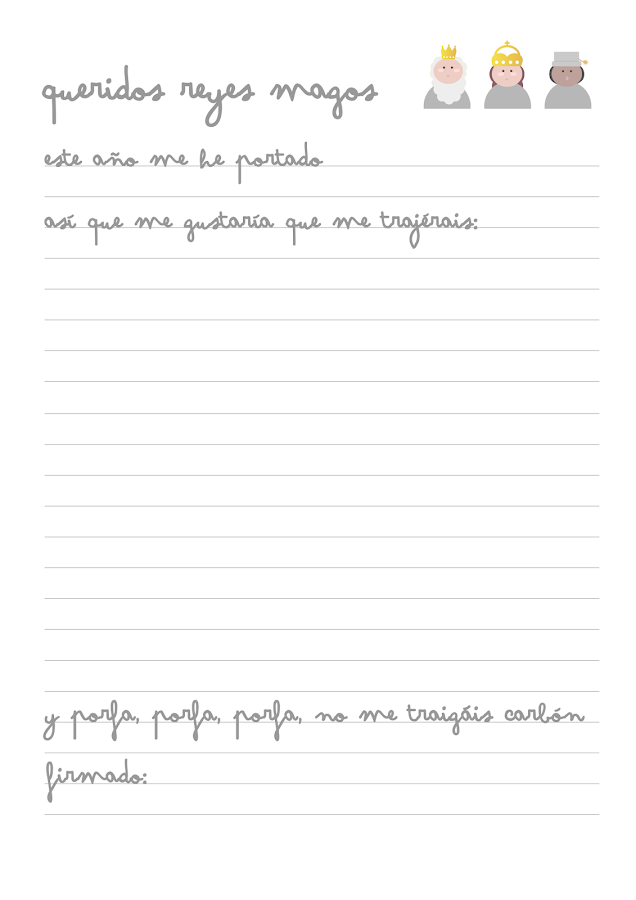 queridos reyes magos
este año me he portado
así que me gustaría que me trajérais:
y porfa, porfa, porfa, no me traigáis carbón
firmado: